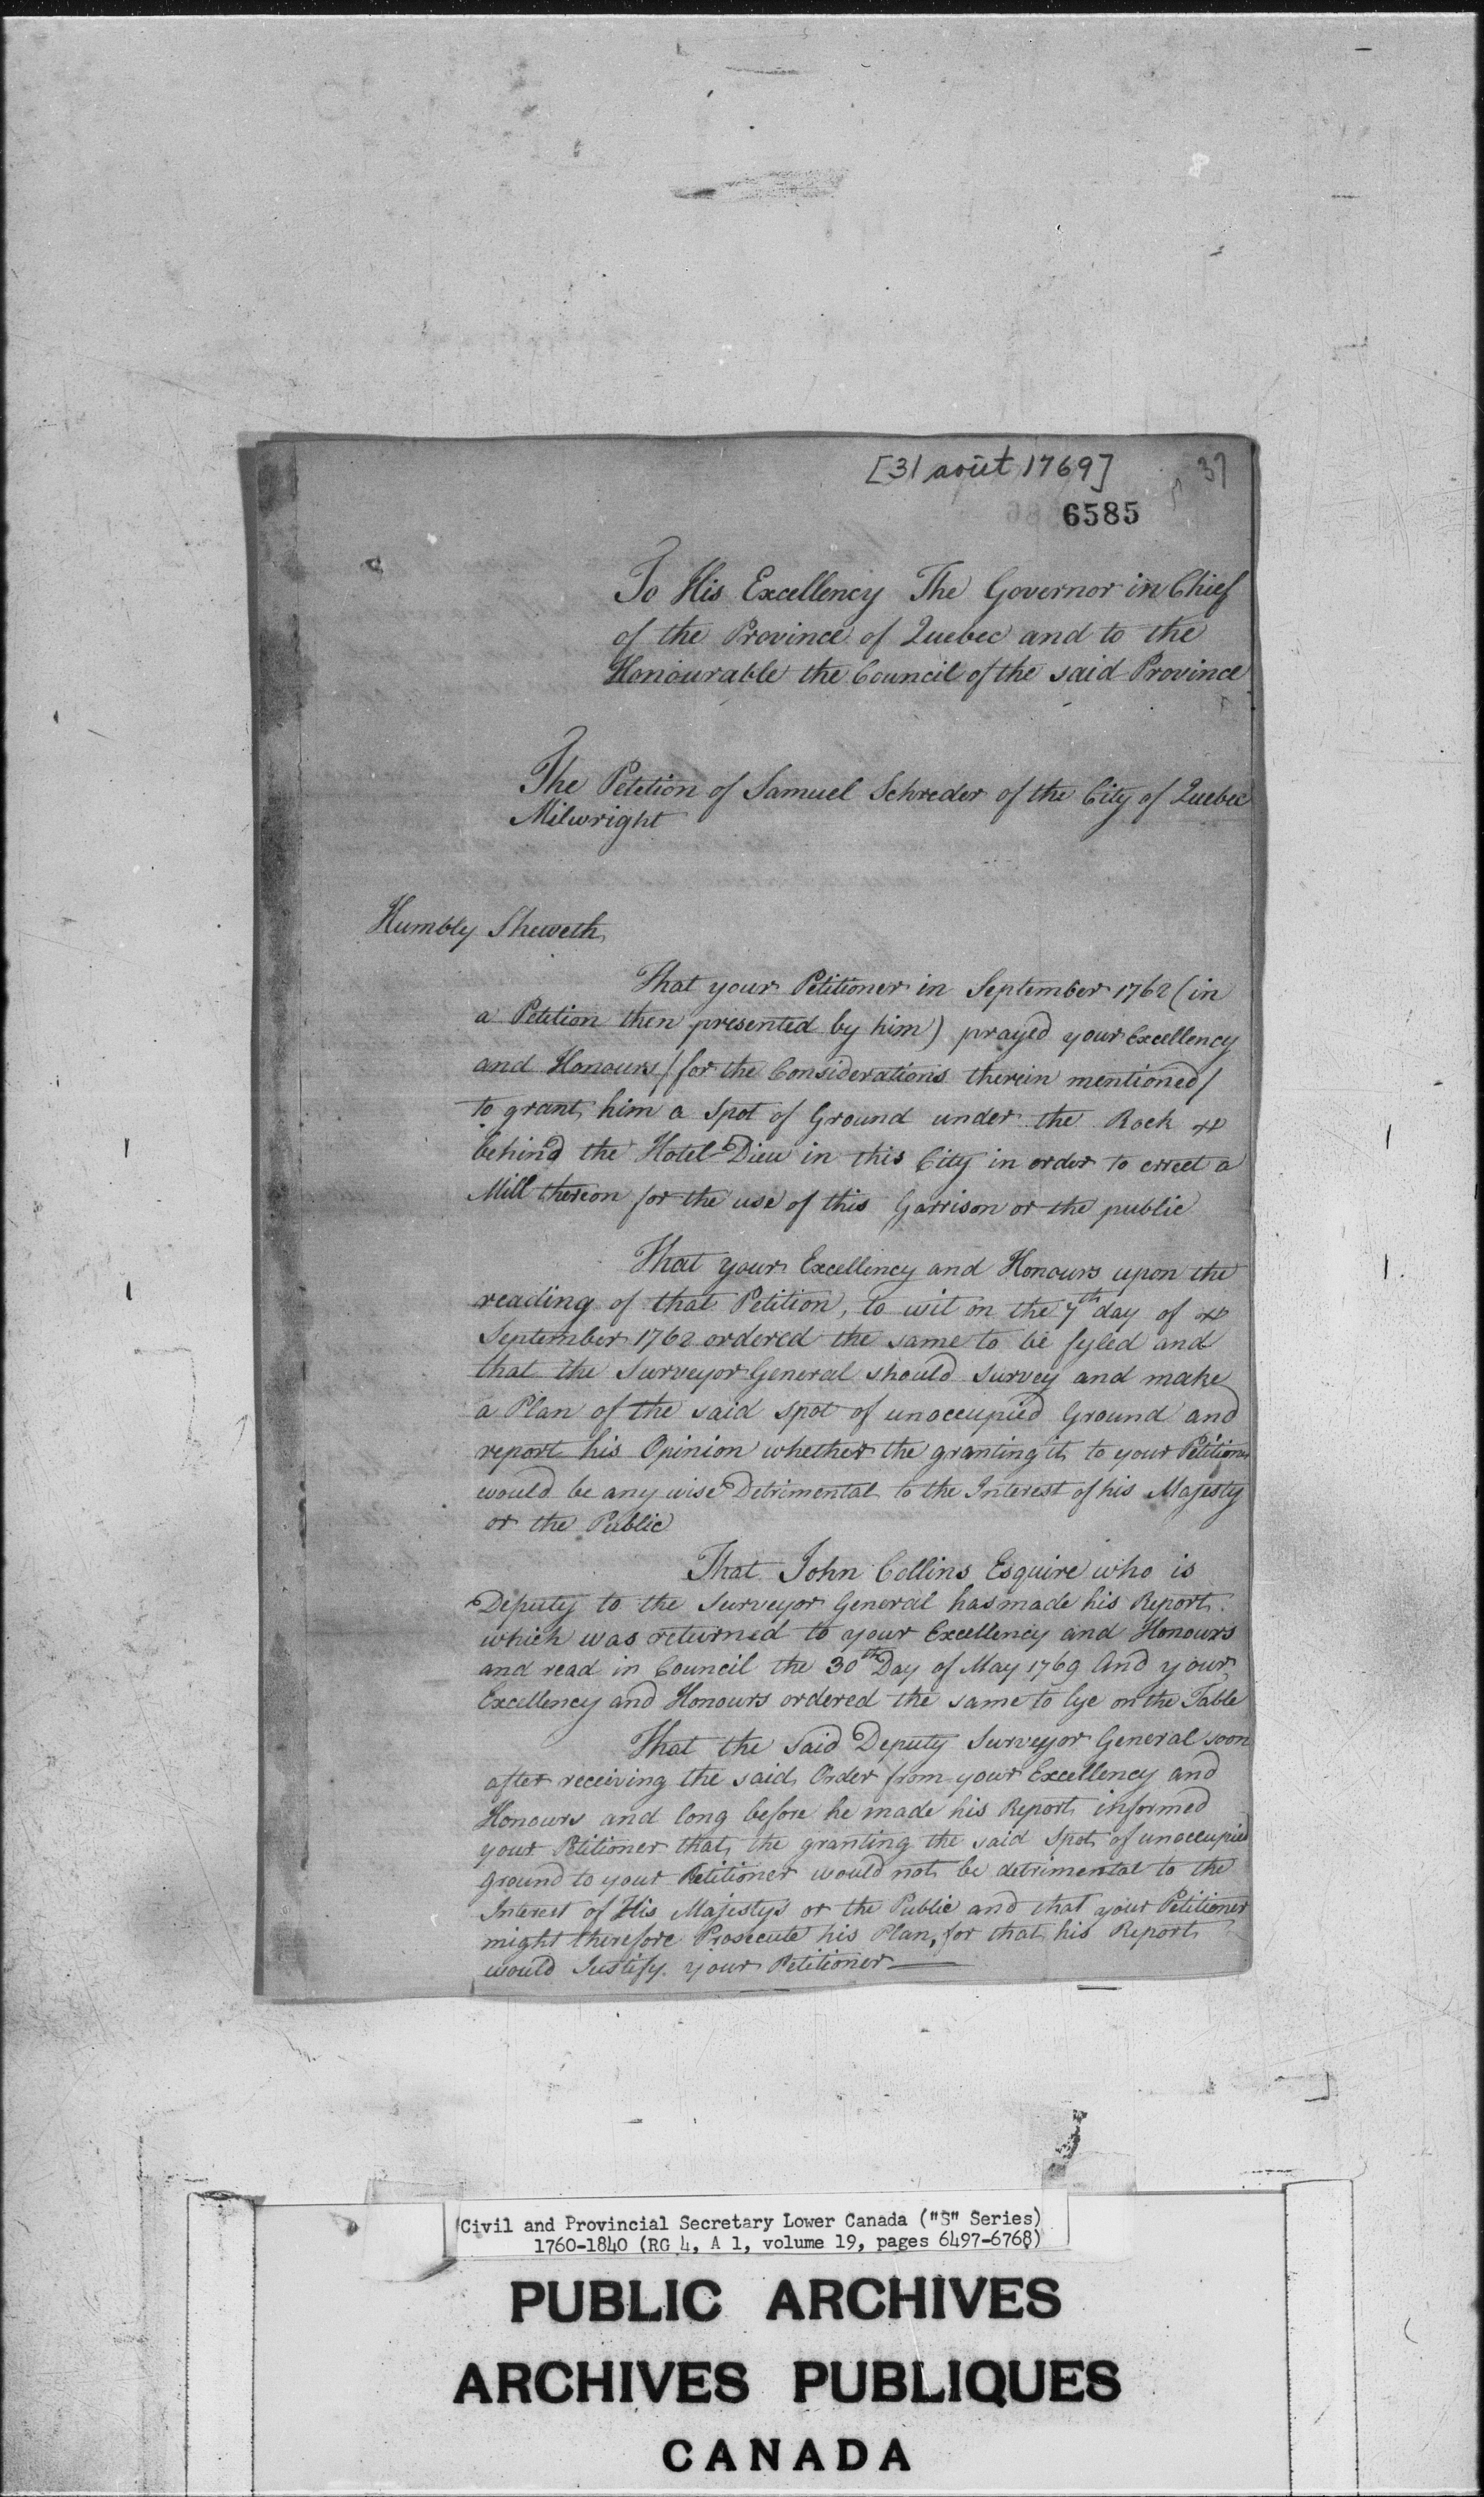 [31 août 1769]
37
6585
To His Excellency The Governor in Chief
of the Province of Quebec and to the
Honourable the Council of the said Province
The Petition of Samuel Schreder of the City of Quebec
Milwright
Humbly Sheweth,
That your Petitioner in September 1762 (in
a Petition then presented by him) prayed your Excellency
and Honours / for the Considerations therein mentioned /
to grant him a Spot of Ground under the Rock
behind the Hotel-Dieu in this City in order to erect a
Mill thereon for the use of this Garrison or the public
That your Excellency and Honours upon the
reading of that Petition, to wit on the 7th day of
September 1762 ordered the same to be fyled and
that the Surveyor General should Survey and make
a Plan of the said spot of unoccupied Ground and
report his Opinion whether the granting it to your Petitioner
would be any wise Detrimental to the Interest of his Majesty
or the Public
That John Collins Esquire who is
Deputy to the Surveyor General has made his Report
which was returned to your Excellency and Honours
and read in Council the 30th Day of May 1769 And your
Excellency and Honours ordered the same to lye on the Table
That the said Deputy Surveyor General soon
after receiving the said Order from your Excellency and
Honours and long before he made his Report informed
your Petitioner that the granting the said Spot of unoccupied
Ground to your Petitioner would not be detrimental to the
Interest of His Majestys or the Public and that your Petitioner
might therefore Prosecute his Plan, for that his Report
would Justify your Petitioner
Civil and Provincial Secretary Lower Canada ("S" Series)
1760-1840 (RG 4, A 1, volume 19, pages 6497-6768)
PUBLIC ARCHIVES
ARCHIVES PUBLIQUES
CANADA